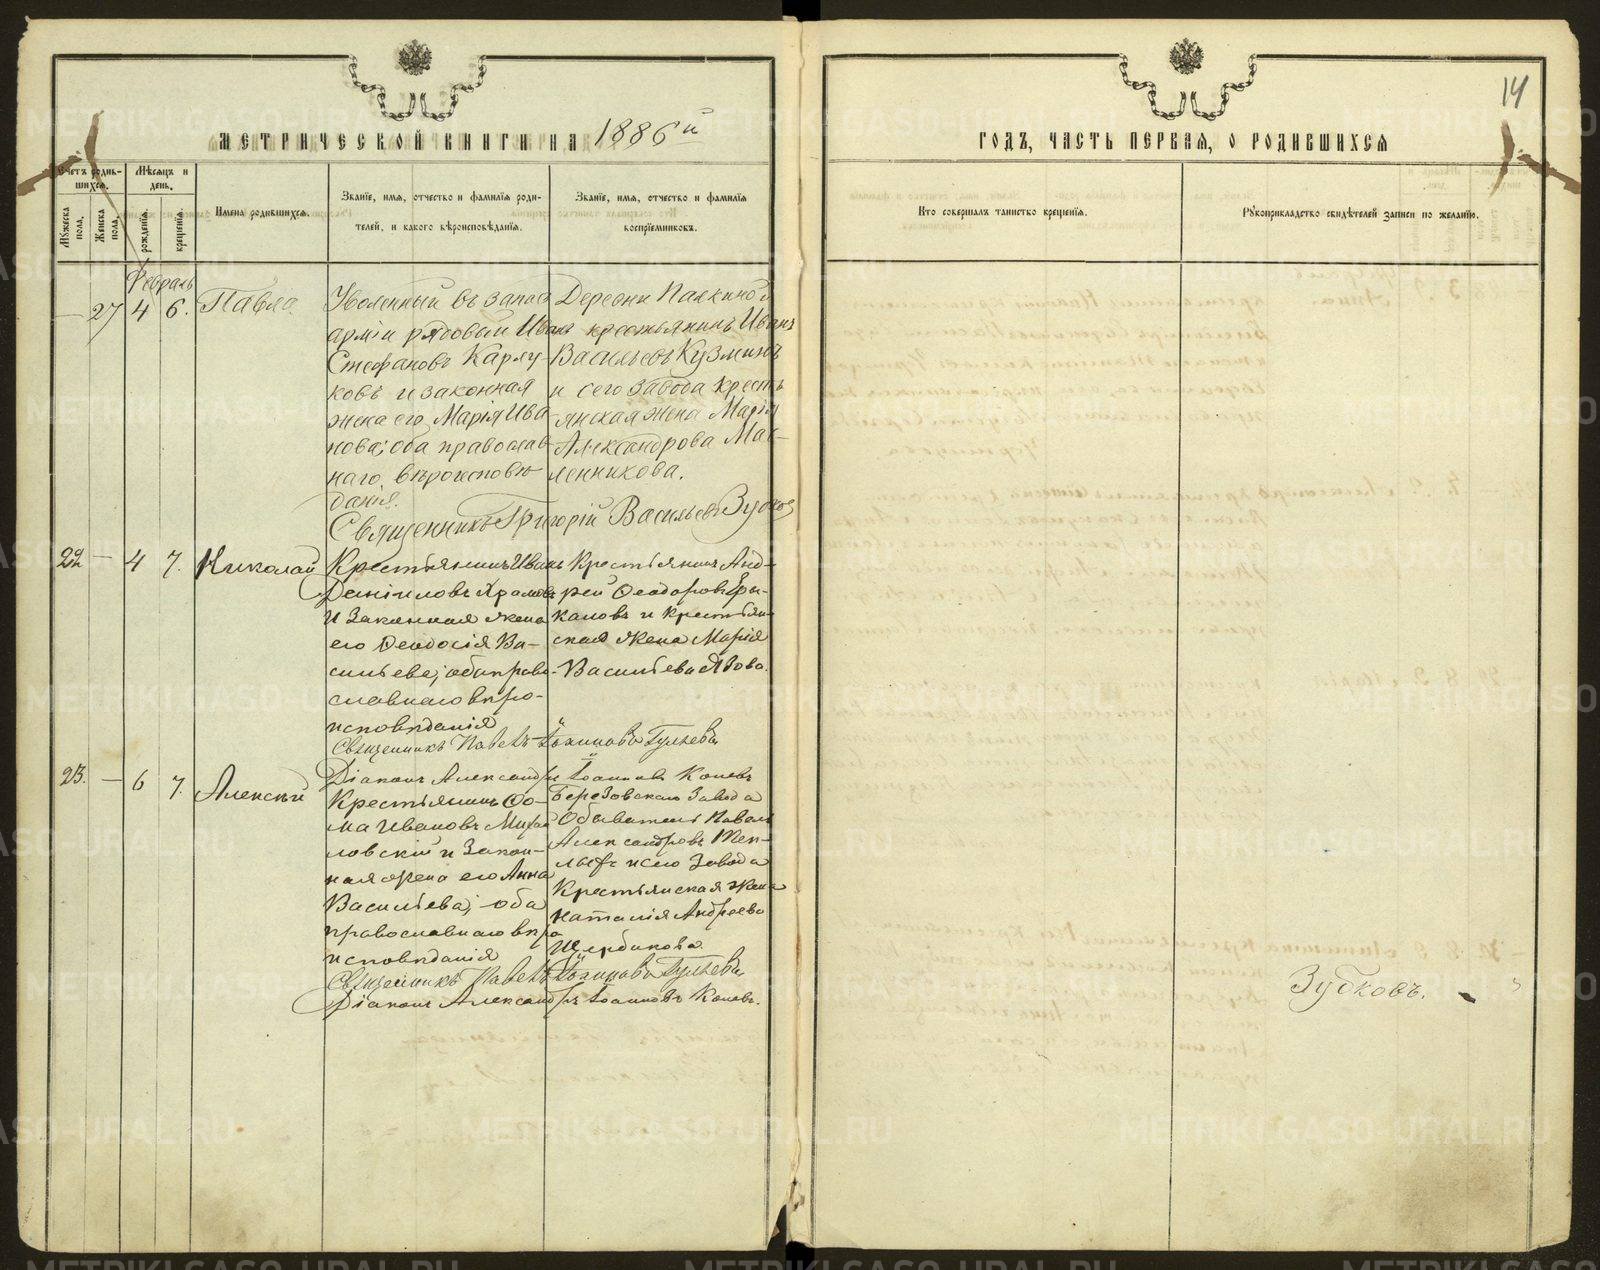 14
МЕТРИЧЕСКОЙ КНИГИ НА 1886й
ГОДЪ, ЧАСТЬ ПЕРВАЯ, О РОДИВШИХСЯ
Счетъ родившихся.
Мѣсяцъ и день.
Мужеска пола.
Женска пола.
рожденія.
крещенія.
Имена родившихся.
Званіе, имя, отчество и фамилія родителей, и какого вѣроисповѣданія.
Званіе, имя, отчество и фамилія воспріемниковъ.
Кто совершалъ таинство крещенія.
Рукоприкладство свидѣтелей записи по желанію.
Февраль
— 27 4 6. Павла
Уволенный въ запас
арміи рядовый Иванъ
Стефановъ Карлу-
ковъ и законная
жена его Марія Ива
нова; оба православ
наго вѣроисповѣ
данія.
Деревни Палкиной
крестьянинъ Иванъ
Васильевъ Кузминъ
и сего завода кресть
янская жена Марія
Александрова Мас-
ленникова.
Священникъ Григорій Васильевъ Зубков
22 — 4 7. Николай
Крестьянинъ Иванъ
Даніиловъ Храмовъ
и законная жена
его Ѳеодосія Ва-
сильева; оба право-
славнаго вѣро-
исповѣданія
Крестьянинъ Анд-
рей Ѳеодоровъ
каловъ и крестьян-
ская жена Марія
Васильева
Священникъ Павелъ Гуляевъ
Діаконъ Александръ Іоанновъ Коневъ
23. — 6 7. Алексѣй
Крестьянинъ Ѳо-
ма Ивановъ
ловскій и закон-
ная жена его Анна
Васильева; оба
православнаго вѣро
исповѣданія
Березовскаго завода
обыватель Павелъ
Александровъ
и сего завода
крестьянская жена
Наталія Андреева
Щербакова
Священникъ Павелъ Гуляевъ
Діаконъ Александръ Іоанновъ Коневъ.
Зубковъ.
METRIKI.GASO-URAL.RU